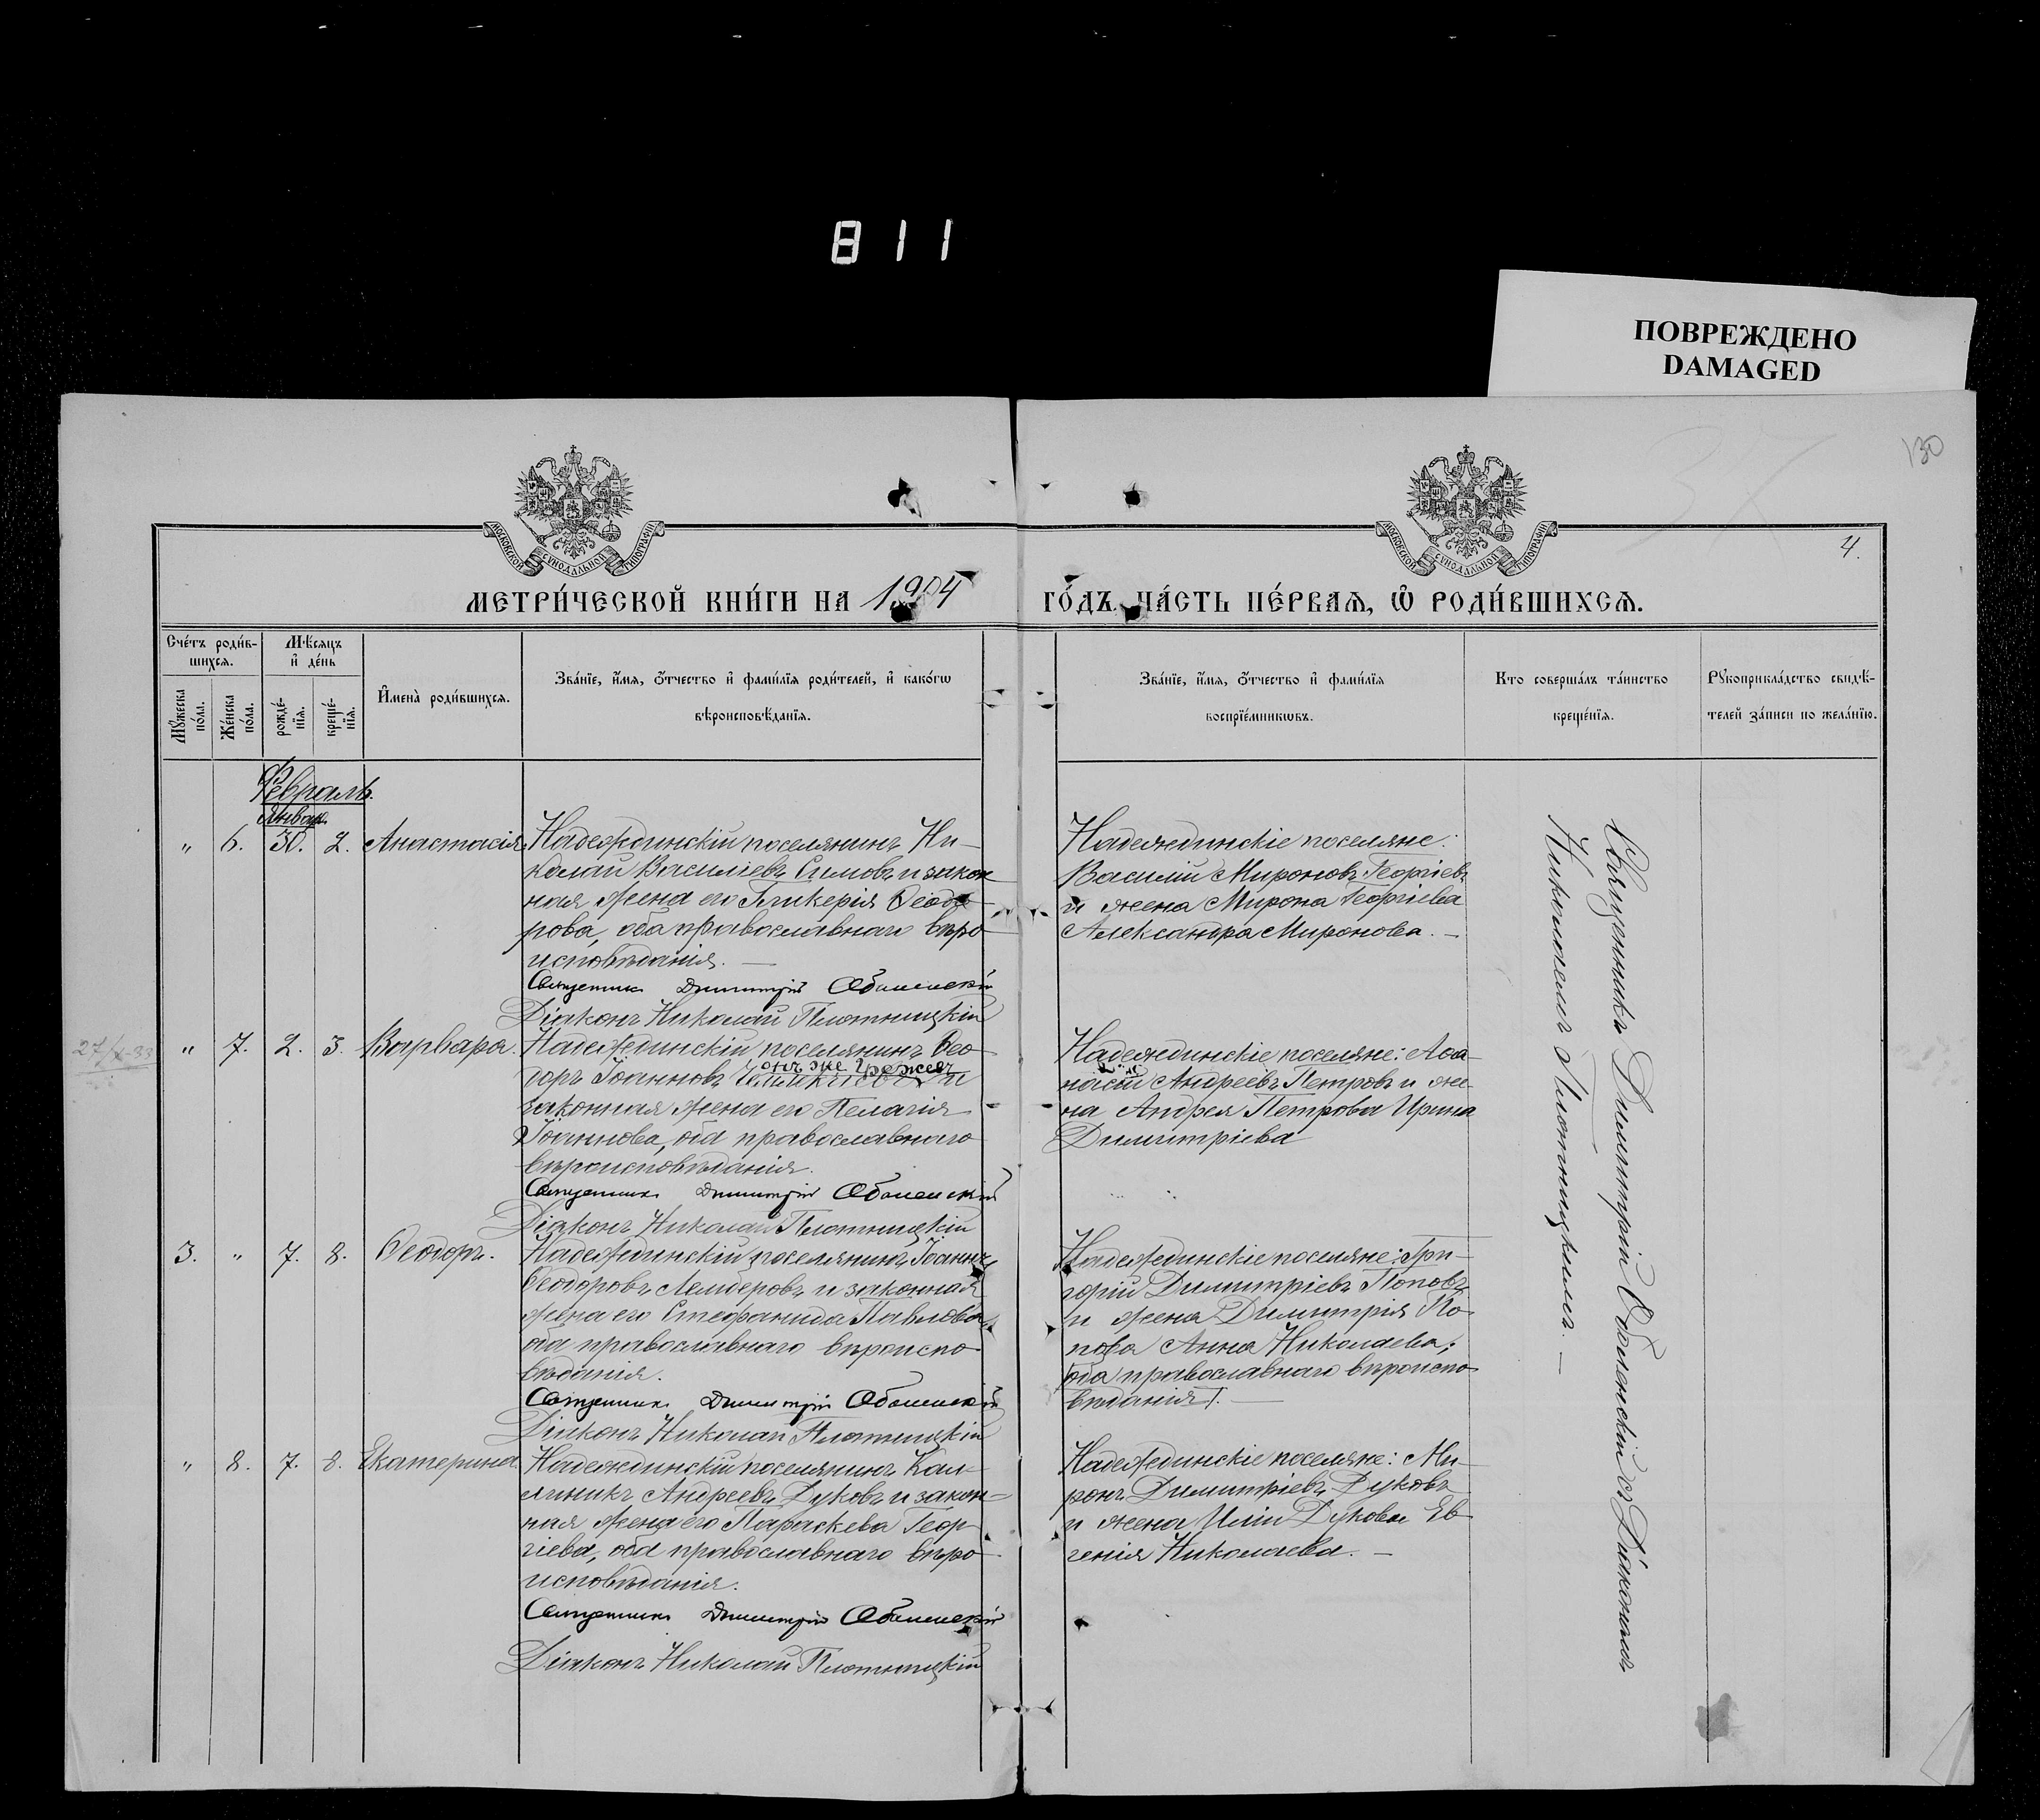 811
ПОВРЕЖДЕНО
DAMAGED
130
37
4.
МОСКОВСКОЙ СѴНОДАЛЬНОЙ ТИПОГРАФІИ
МОСКОВСКОЙ СѴНОДАЛЬНОЙ ТИПОГРАФІИ
МЕТРИ́ЧЕСКОЙ КНИ́ГИ НА 1904
ГО́ДЪ, ЧА́СТЬ ПЕ́РВАѦ, Ѽ РОДИ́ВШИХСѦ.
Сче́тъ роди́в-
шихсѧ.
Мѣ́сѧцъ
и҆ де́нь
Мꙋ́жеска по́ла.
Же́нска по́ла.
рожде́-
нїѧ.
креще́-
нїѧ.
И҆мена̀ роди́вшихсѧ.
Зва́нїе, и҆́мѧ, ѻ҆́тчество и҆ фами́лїѧ роди́телей, и҆ како́гѡ
вѣроисповѣ́данїѧ.
Зва́нїе, и҆́мѧ, ѻ҆́тчество и҆ фами́лїѧ
воспрїе́мникѡвъ.
Кто соверша́лъ та́инство
креще́нїѧ.
Рꙋкоприкла́дство свидѣ́-
телей за́писи по жела́нїю.
Февраль.
Январ.
" 6. 30. 2. Анастасія
Надеждинскій поселянинъ Ни-
колай Василіевъ Симовъ и закон
ная жена его Гликерія Ѳеодо
рова, оба православнаго вѣро
исповѣданія. —
Священник Димитрій Оболенскій
Діаконъ Николай Плотницкій
Надеждинскіе поселяне:
Василій Мироновъ Георгіевъ
и жена Мирона Георгіева
Александра Миронова. —
27/X-33
" 7. 2. 3. Варвара.
Надеждинскій поселянинъ Ѳео
онъ же Грежев
доръ Іоанновъ и
законная жена его Пелагія
Іоаннова, оба православнаго
вѣроисповѣданія.
Священник Димитрій Оболенскій
Діаконъ Николай Плотницкій
Надеждинскіе поселяне: Аѳа
насій Андреевъ Петровъ и же-
на Андрея Петрова Ирина
Димитріева
3. " 7. 8. Ѳеодоръ.
Надеждинскій поселянинъ Іоаннъ
Ѳеодоровъ Лемберовъ и законная
жена его Стефанида Павлова
оба православнаго вѣроиспо
вѣданія.
Священник Димитрій Оболенскій
Діаконъ Николай Плотницкій
Надеждинскіе поселяне: Гри-
горій Димитріевъ Поповъ
и жена Димитрія По-
пова Анна Николаева,
оба православнаго вѣроиспо
вѣданія. —
" 8. 7. 8. Екатерина
Надеждинскій поселянинъ Кал-
линикъ Андреевъ Дуковъ и закон-
ная жена его Параскева Геор-
гіева, оба православнаго вѣро
исповѣданія.
Священник Димитрій Оболенскій
Діаконъ Николай Плотницкій
Надеждинскіе поселяне: Ми-
ронъ Димитріевъ Дуковъ
и жена Иліи Дукова Ев-
генія Николаева. —
Священникъ Димитрій Оболенскій съ Діакономъ
Николаемъ Плотницкимъ. —